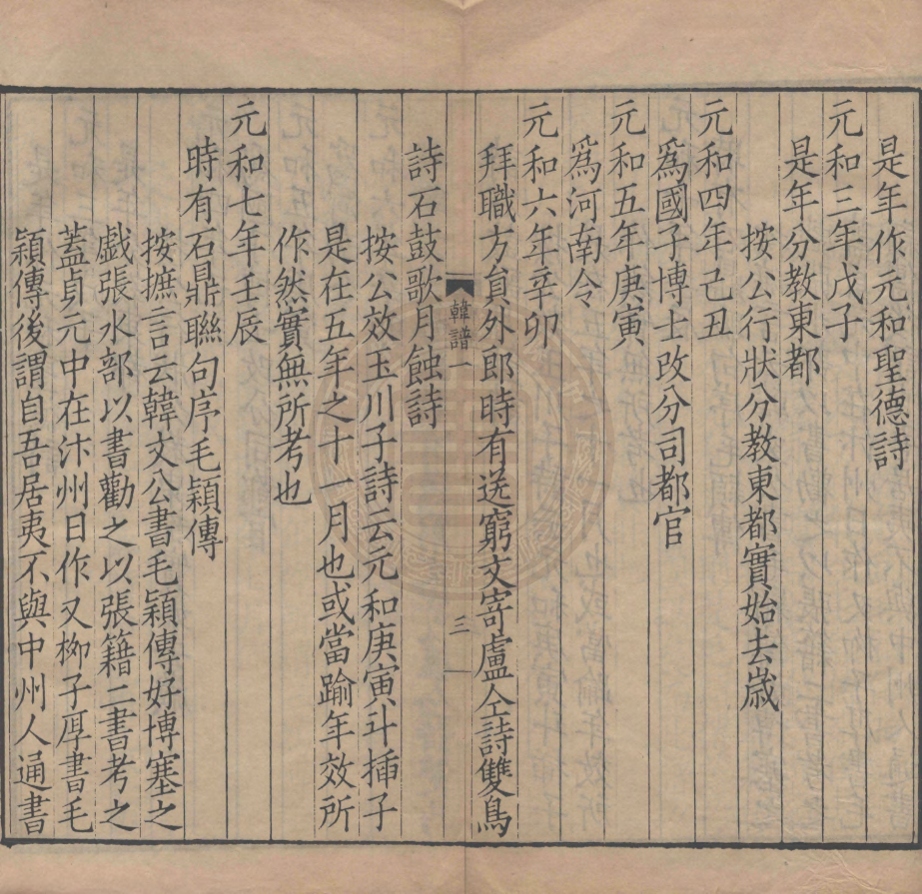 是年作元和聖德詩
元和三年戊子
是年分教東都
按公行狀分教東都實始去歲
元和四年己丑
爲國子博士改分司都官
元和五年庚寅
爲河南令
元和六年辛卯
拜職方員外郎時有送窮文寄盧仝詩雙鳥
詩石鼓歌月蝕詩
韓譜一
三
按公效玉川子詩云元和庚寅斗插子
是在五年之十一月也或當踰年效所
作然實無所考也
元和七年壬辰
時有石鼎聯句序毛穎傳
按摭言云韓文公書毛穎傳好博塞之
戱張水部以書勸之以張籍二書考之
蓋貞元中在汴州日作又柳子厚書毛
穎傳後謂自吾居夷不與中州人通書